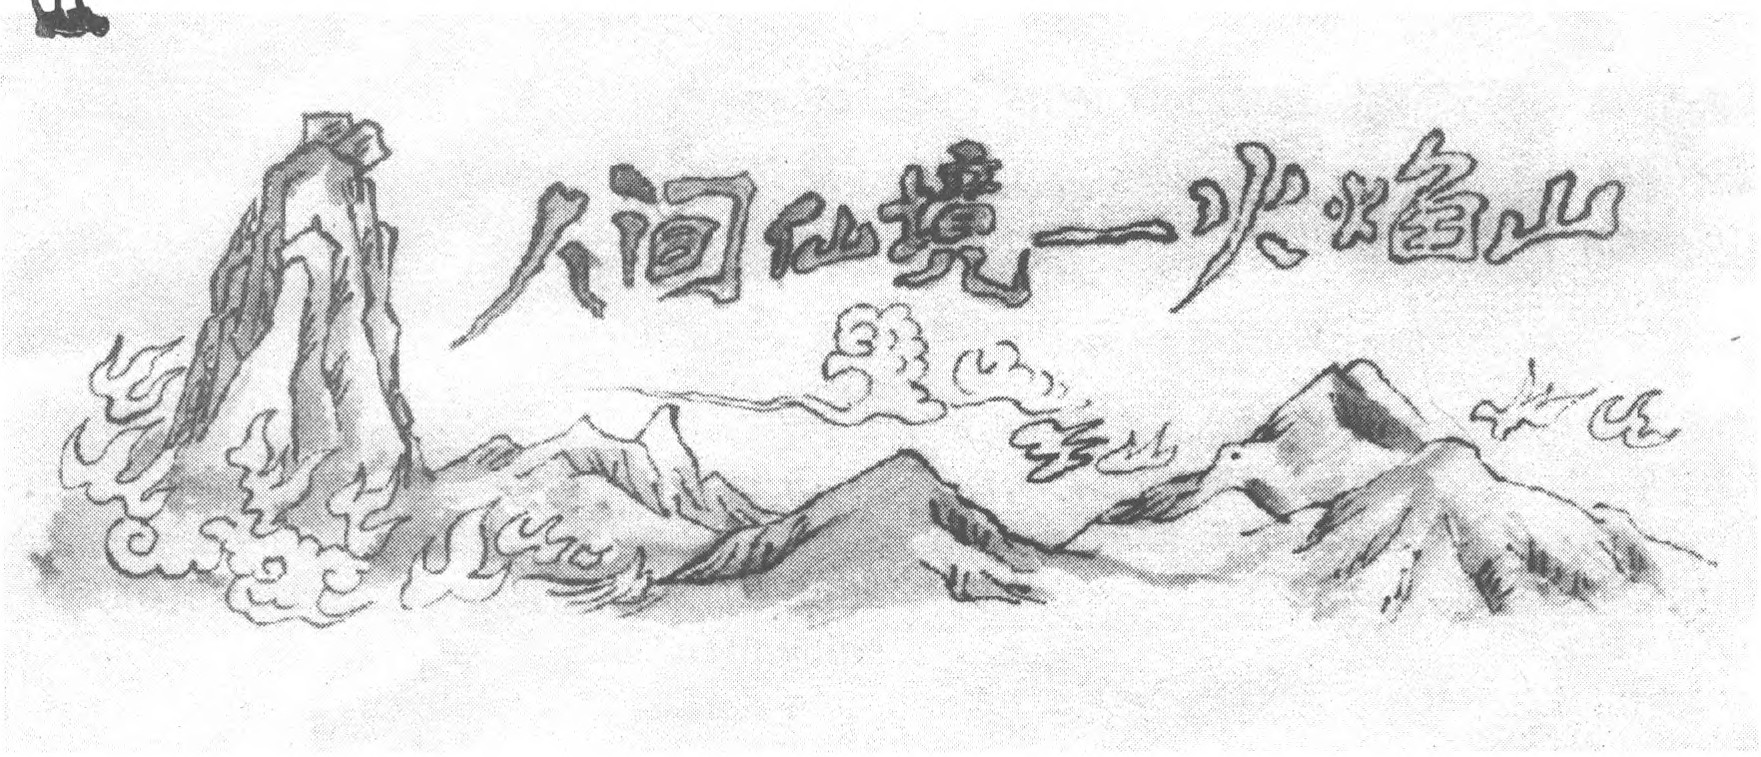 人间仙境一火焰山